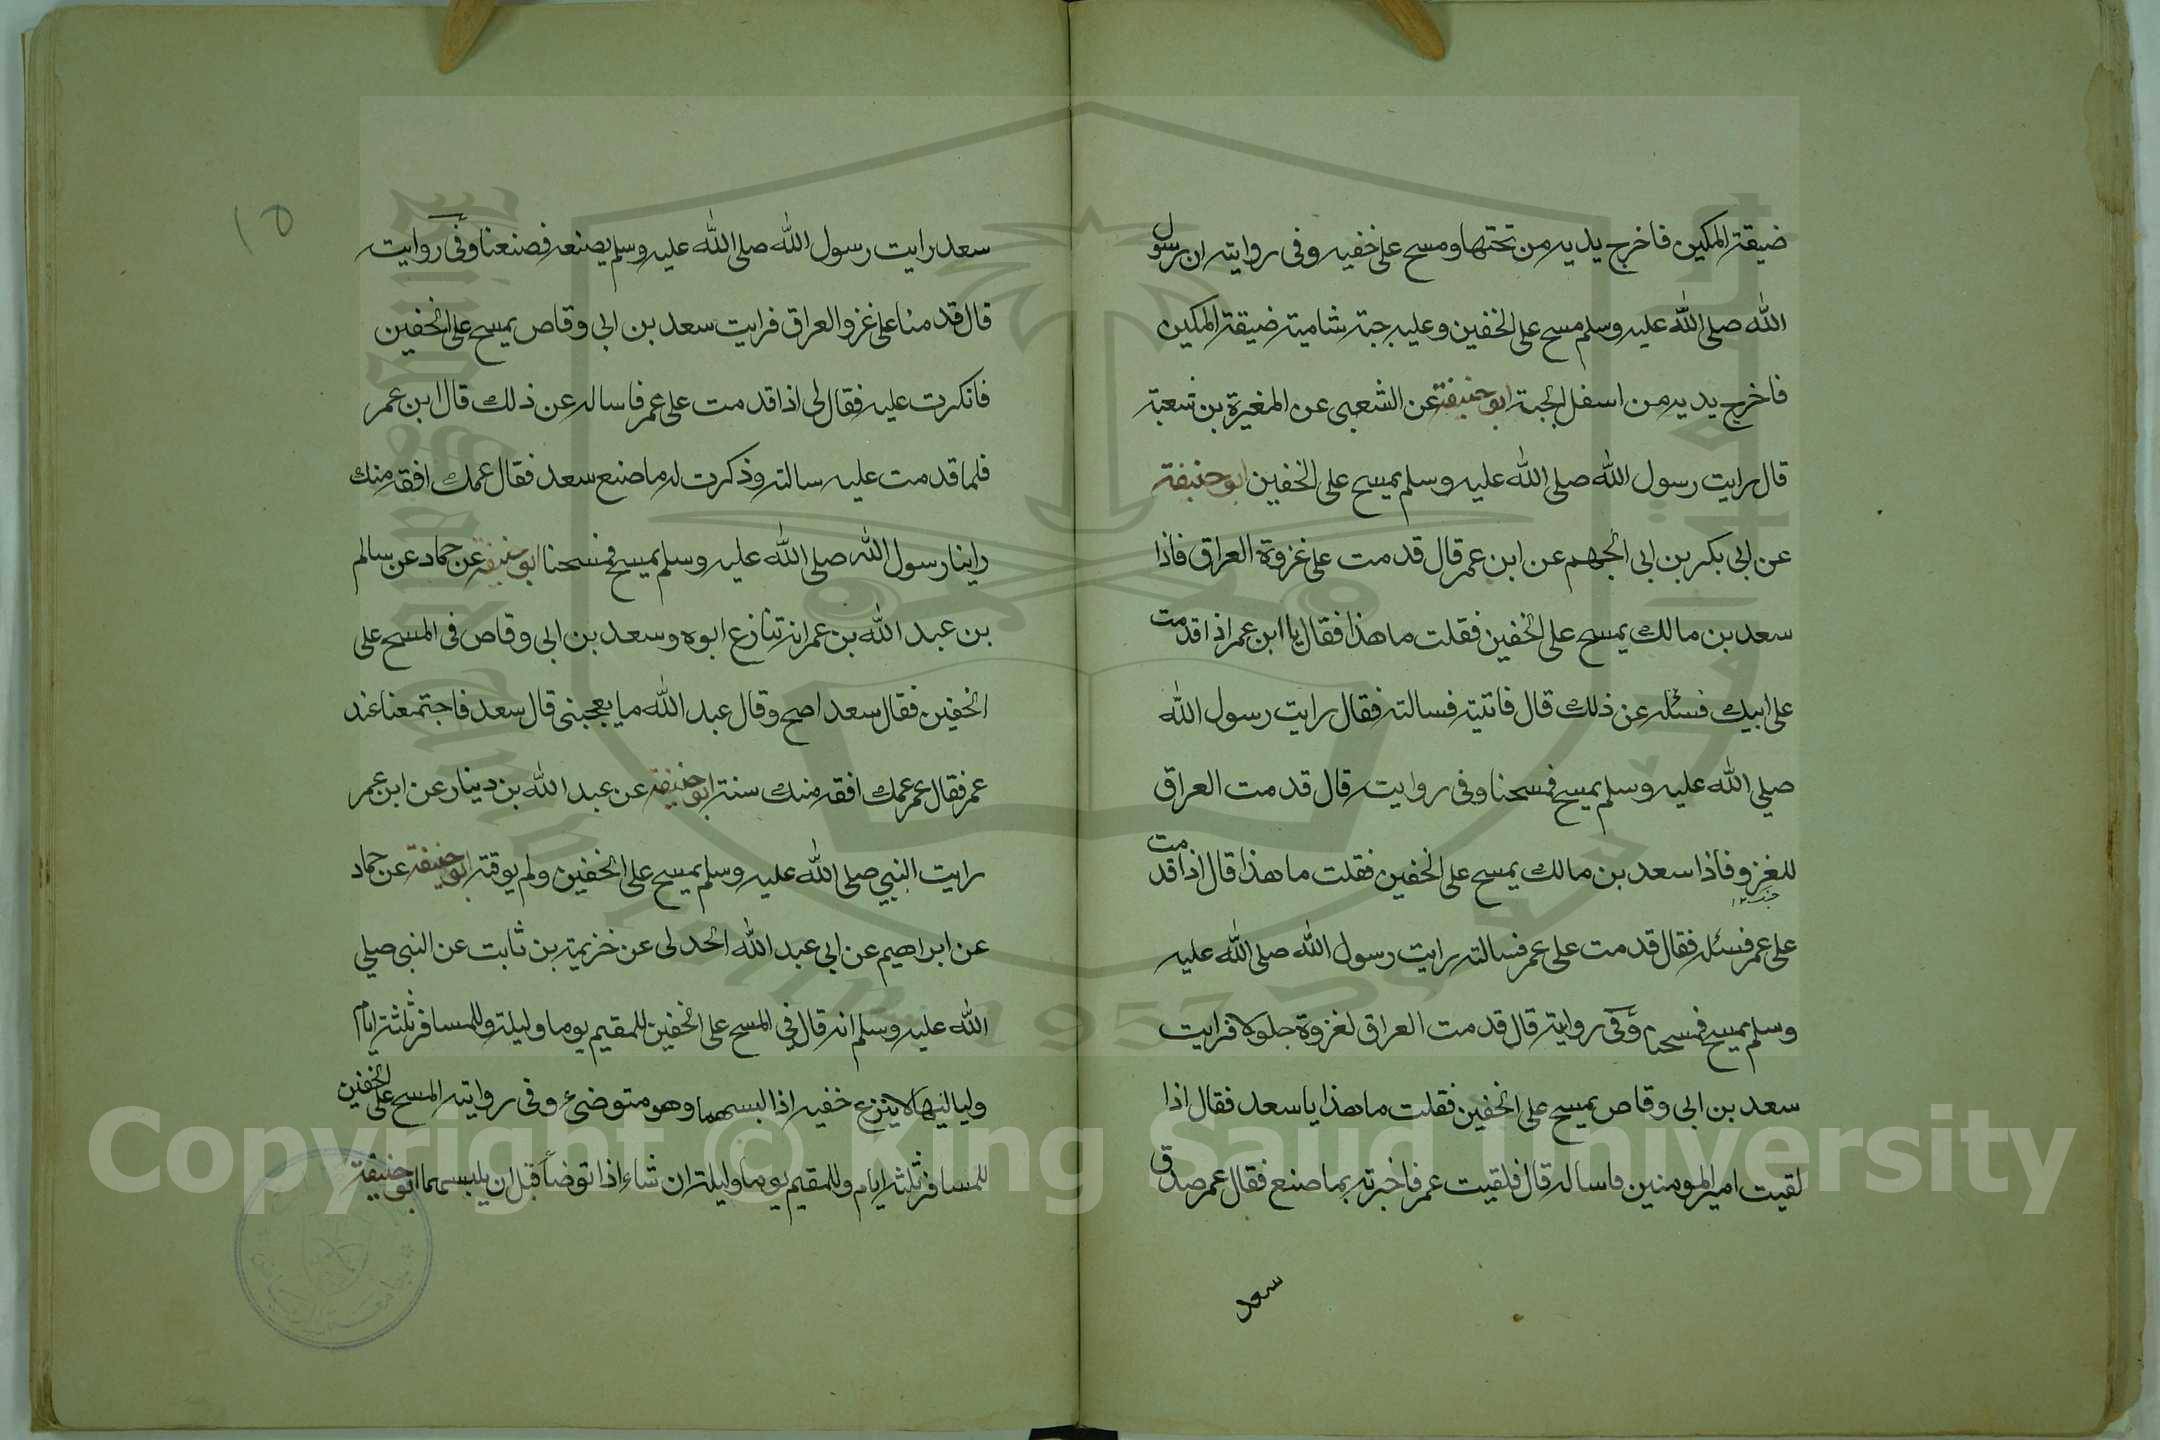 ضيقة المكين فاخرج يديه من تحتها ومسح على خفيه وفى رواية ان رسول
الله صلى الله عليه وسلم مسح على الخفين وعليه جبة شامية ضيقة المكين
فاخرج يديه من اسفل الجبة ابو حنيفة عن الشعبى عن المغيرة بن شعبة
قال رايت رسول الله صلى الله عليه وسلم يمسح على الخفين ابو حنيفة
عن ابى بكر بن ابى الجهم عن ابن عمر قال قدمت على غزوة العراق فاذا
سعد بن مالك يمسح على الخفين فقلت ما هذا فقال يا ابن عمر اذا قدمت
على ابيك فسئله عن ذلك قال فاتيته فسالته فقال رايت رسول الله
صلي الله عليه وسلم يمسح فمسحنا وفى رواية قال قدمت العراق
للغزو فاذا سعد بن مالك يمسح على الخفين فقلت ما هذا قال اذا قدمت
على عمر فسئله فقال قدمت على عمر فسالته رايت رسول الله صلى الله عليه
وسلم يمسح فمسحنا وفى رواية قال قدمت العراق لغزوة جلولا فرايت
سعد بن ابى وقاص يمسح على الخفين فقلت ما هذا يا سعد فقال اذا
لقيت امير المومنين فاساله قال فلقيت عمر فاخبرته بما صنع فقال عمر صدق
سعد
١٥
سعد رايت رسول الله صلى الله عليه وسلم يصنعه فصنعنا وفى رواية
قال قدمنا على غزو العراق فرايت سعد بن ابى وقاص يمسح على الخفين
فانكرت عليه فقال لى اذا قدمت على عمر فاساله عن ذلك قال ابن عمر
فلما قدمت عليه سالته وذكرت له ما صنع سعد فقال عمك افقه منك
راينا رسول الله صلى الله عليه وسلم يمسح فمسحنا ابو حنيفة عن حماد عن سالم
بن عبد الله بن عمر انه تنازع ابوه وسعد بن ابى وقاص فى المسح على
الخفين فقال سعد امسح وقال عبد الله ما يعجبنى قال سعد فاجتمعنا عند
عمر فقال عمر عمك افقه منك سنة ابو حنيفة عن عبد الله بن دينار عن ابن عمر
رايت النبي صلى الله عليه وسلم يمسح على الخفين ولم يوقته ابو حنيفة عن حماد
عن ابراهيم عن ابي عبد الله الجدلى عن خزيمة بن ثابت عن النبى صلي
الله عليه وسلم انه قال في المسح على الخفين للمقيم يوما وليلة وللمسافر ثلثة ايام
ولياليها لا ينزع خفيه اذا لبسهما وهو متوضئ وفى رواية المسح على الخفين
للمسافر ثلثة ايام وللمقيم يوما وليلة ان شاء اذا توضأ قبل ان يلبسهما ابو حنيفة
Copyright © King Saud University
1957